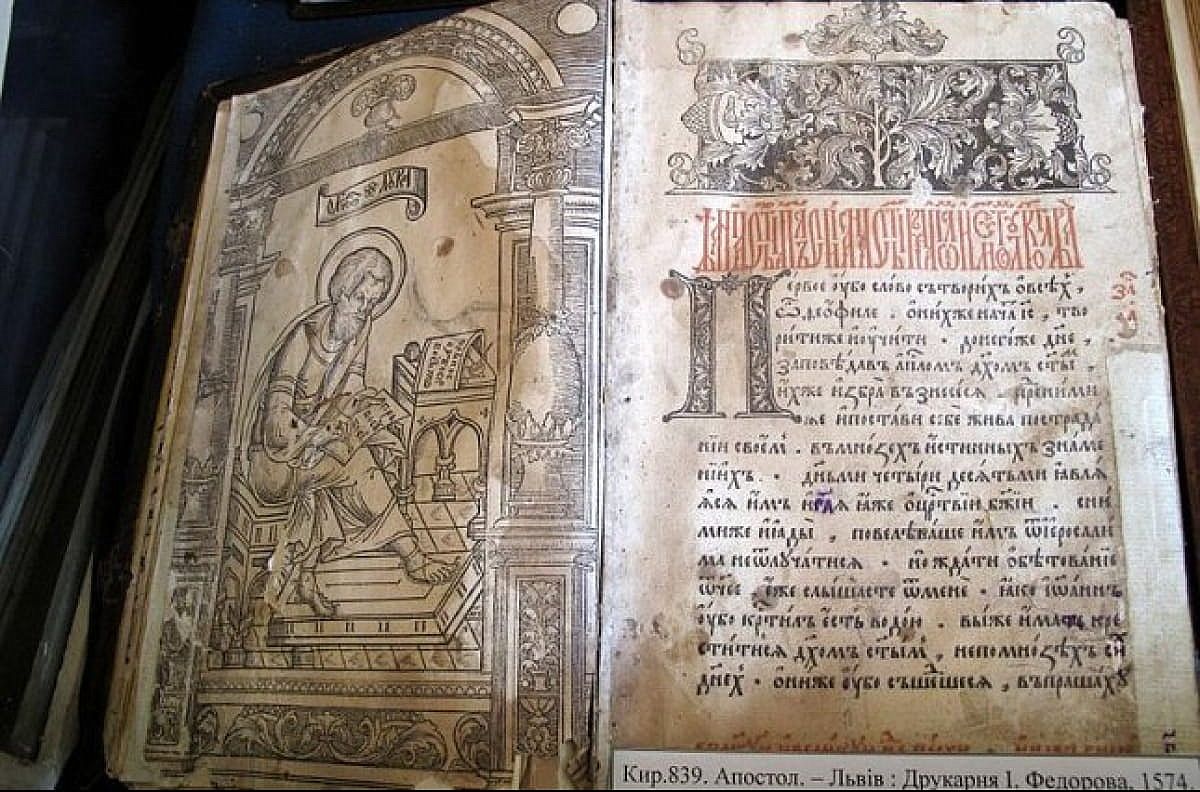 Первое ѹбо слово сътворихъ ѡ всѣⷯ,
ѽ ѳеофиле. ѡ нихже начатъ і҃с, тво
рити же и ѹчити. до негоже дн҃е,
заповѣдавъ апⷭ҇лом дх҃омъ ст҃ы
ихже избра възнесесѧ. пред ними
же и постави себе жива по страда
нїи своеⷨ. въ мнозѣхъ истинныхъ знаме
нїихъ. дньми четыри десѧтьми ꙗвлѧ
ꙗсѧ имъ и гл҃ѧ ꙗже о црⷭ҇твїи бж҃їи. с ни
миже и ꙗды, повелѣваше имъ ѿ іерⷭ҇али
ма не ѿлучатисѧ. но ждати обѣтованїе
ѿчее, еже слышасте ѿ мене. ꙗко іѡаннъ
ѹбо крⷭ҇тилъ есть водою. вы же имате кре
ститисѧ дх҃омъ ст҃ымъ, не по мнозѣхъ си
днеⷯ. они же ѹбо съшедшесѧ, въпрашахѹ
Кир.839. Апостол. – Львів : Друкарня І. Федорова, 1574.